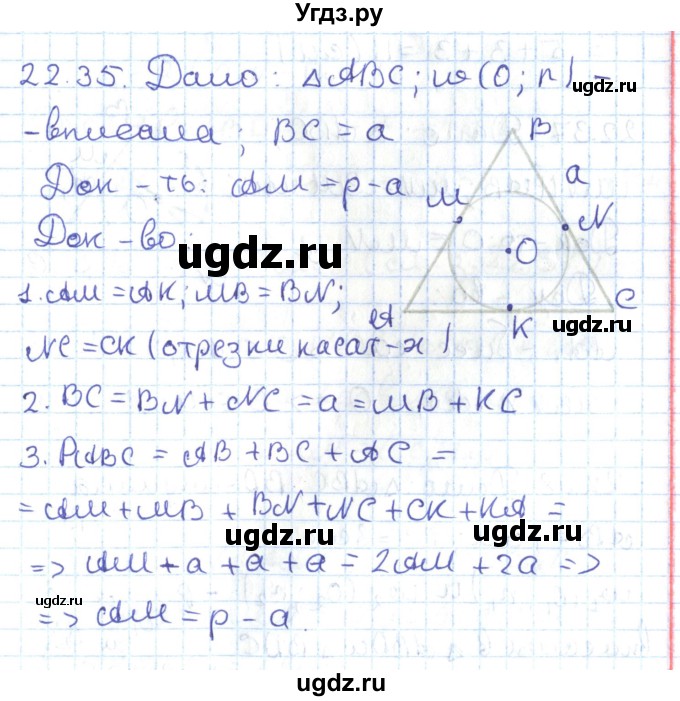 Угдз.ру
22.35. Дано: △ABC; ω(O; r) –
ugdz.ru
-вписана; BC = a
B
a
Док-ть: AM = p - a
M
N
Док-во:
ugdz.ru
O
1. AM = AK; MB = BN;
A
K
C
ugdz.ru
NC = CK (отрезки касат-х)
2. BC = BN + NC = a = MB + KC
3. PABC = AB + BC + AC =
= AM + MB + BN + NC + CK + KA =
ugdz.ru
=> AM + a + a + a = 2AM + 2a =>
ugdz.ru
=> AM = p - a
ugdz.ru
ugdz.ru